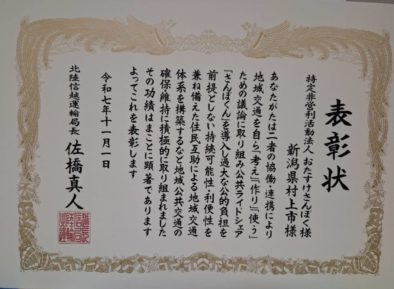 表彰状
特定非営利活動法人おたすけさんぽく様
新潟県村上市様
あなたがたは二者の協働・連携により
地域交通を自ら「考え」「作り」「使う」
ための議論に取り組み公共ライドシェア
「さんぽくん」を導入し過大な公的負担を
前提としない持続可能性・利便性を
兼ね備えた住民互助による地域交通
体系を構築するなど地域公共交通の
確保維持に積極的に取り組まれました
その功績はまことに顕著であります
よってこれを表彰します
令和七年十一月一日
北陸信越運輸局長 佐橋真人